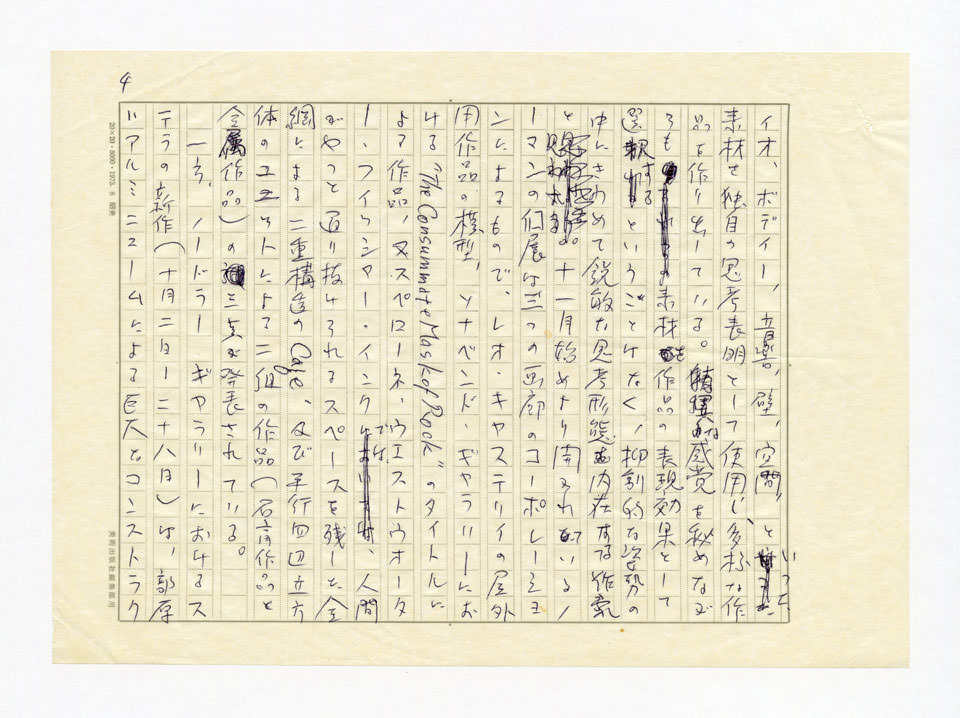 4
イオ、ボディー、音楽、壁、空間、といった
素材を独自の思考表明として使用し、多様な作
品を作り出している。 感覚を秘めなが
らも 素材を作品の表現効果として
選択するということはなく、抑制的な姿勢の
中にきわめて鋭敏な思考形態を内在する作家
と 。十一月始めより開かれているノ
ーマンの個展は三つの画廊のコーポレーショ
ンによるもので、レオ・キャステリイの屋外
用作品の模型、ソナベンド・ギャラリーにお
ける"The Consummate Mask of Rock"のタイトルに
よる作品、又スペローネ・ウエストウオータ
ー・フィッシャー・インクでは、人間
がやっと通り抜けられるスペースを残した金
網による二重構造のCage、及び平行四辺立方
体のユニットによる二組の作品(石膏作品と
金属作品)の三点が発表されている。
一方、ノードラー ギャラリーにおけるス
テラの新作(十月二日ー二十八日)は、部厚
いアルミニュームによる巨大なコンストラク
20×20・8000・1973.8 昭東
美術出版社編集部用